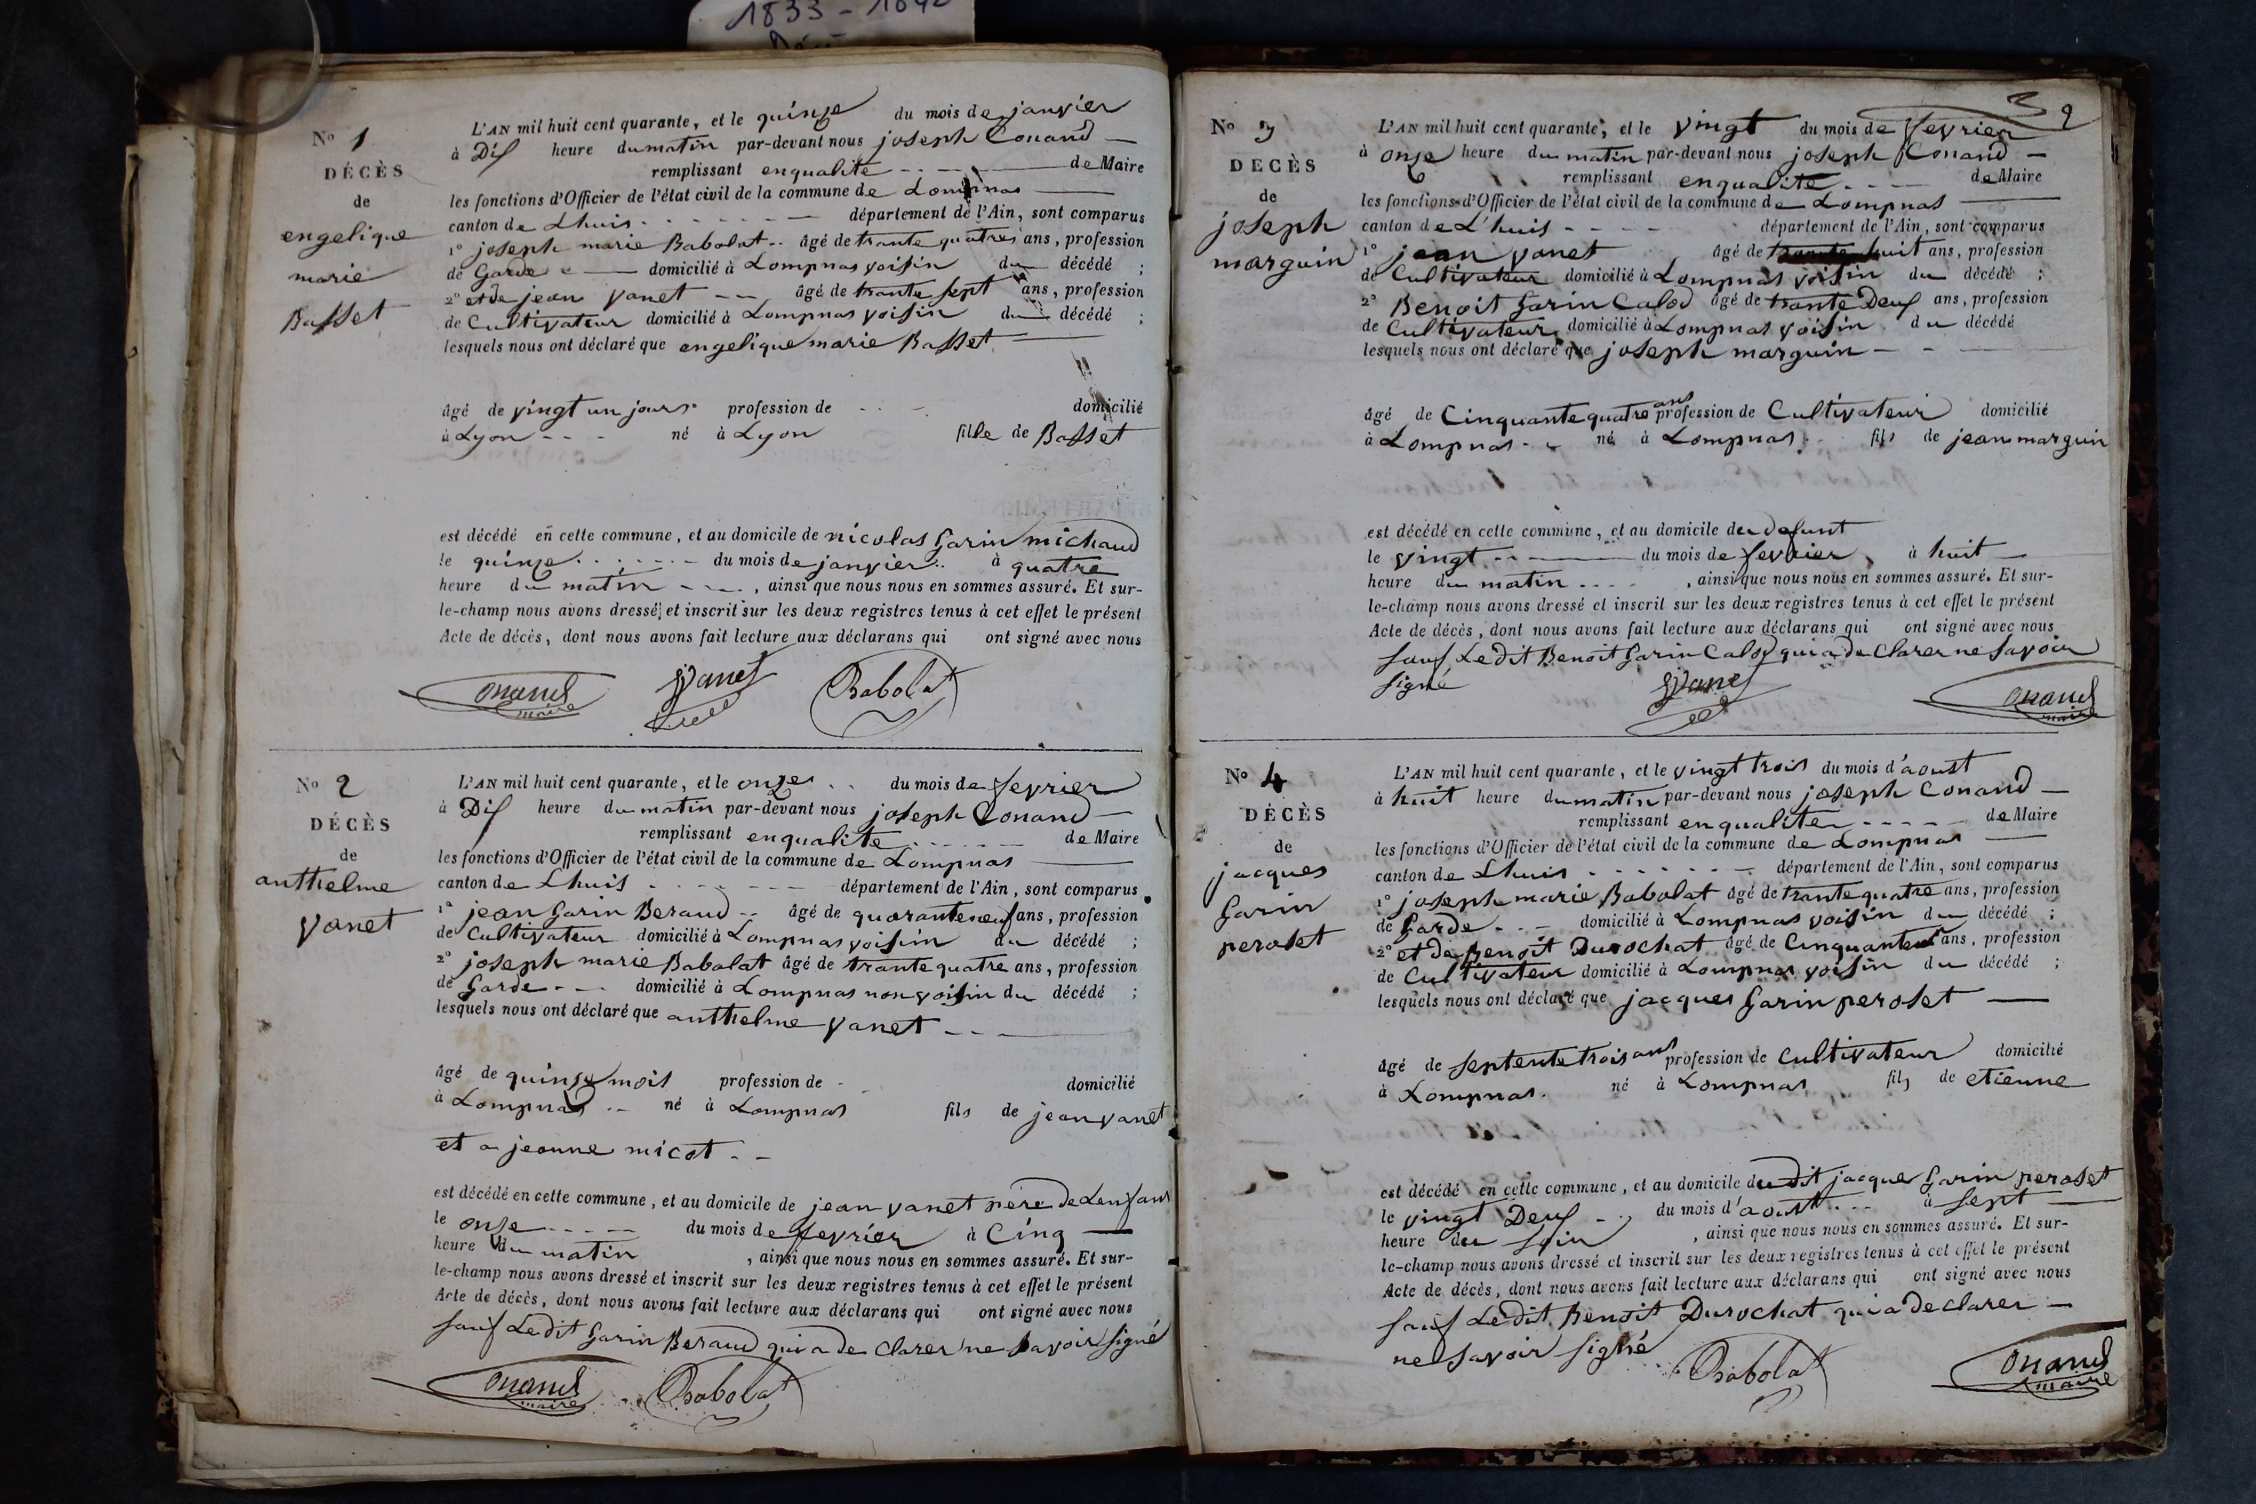 1833 - 1842
N° 1
DÉCÈS
de
engelique
marie
Basset
L'AN mil huit cent quarante, et le quinze du mois de janvier
à Dix heure du matin par-devant nous joseph Conand
remplissant enqualité de Maire
les fonctions d'Officier de l'état civil de la commune de Lompnas
canton de Lhuis département de l'Ain, sont comparus
1° joseph marie Babolat âgé de trante quatres ans, profession
de Garde domicilié à Lompnas voisin du décédé ;
2° et de jean vanet âgé de trante sept ans, profession
de Cultivateur domicilié à Lompnas voisin du décédé ;
lesquels nous ont déclaré que engelique marie Basset
âgé de vingt un jours profession de domicilié
à Lyon né à Lyon fille de Basset
est décédé en cette commune, et au domicile de nicolas Garin michaud
le quinze du mois de janvier à quatre
heure du matin , ainsi que nous nous en sommes assuré. Et sur-
le-champ nous avons dressé et inscrit sur les deux registres tenus à cet effet le présent
Acte de décès, dont nous avons fait lecture aux déclarans qui ont signé avec nous
Onand maire JVanet Babolat
N° 2
DÉCÈS
de
anthelme
vanet
L'AN mil huit cent quarante, et le onze du mois de fevrier
à Dix heure du matin par-devant nous joseph Conand
remplissant enqualité de Maire
les fonctions d'Officier de l'état civil de la commune de Lompnas
canton de Lhuis département de l'Ain, sont comparus
1° jean Garin Beraud âgé de quaranteneuf ans, profession
de Cultivateur domicilié à Lompnas voisin du décédé ;
2° joseph marie Babolat âgé de trante quatre ans, profession
de Garde domicilié à Lompnas non voisin du décédé ;
lesquels nous ont déclaré que anthelme vanet
âgé de quinze mois profession de domicilié
à Lompnas né à Lompnas fils de jean vanet
et a jeanne micot
est décédé en cette commune, et au domicile de jean vanet père de Lenfant
le onze du mois de fevrier à Cinq
heure du matin , ainsi que nous nous en sommes assuré. Et sur-
le-champ nous avons dressé et inscrit sur les deux registres tenus à cet effet le présent
Acte de décès, dont nous avons fait lecture aux déclarans qui ont signé avec nous
sauf Ledit Garin Beraud qui a de Clarer ne savoir signé
Onand maire Babolat
9
N° 3
DECÈS
de
joseph
marguin
L'AN mil huit cent quarante, et le vingt du mois de fevrier
à onze heure du matin par-devant nous joseph Conand
remplissant enqualité de Maire
les fonctions d'Officier de l'état civil de la commune de Lompnas
canton de L'huis département de l'Ain, sont comparus
1° jean vanet âgé de trante huit ans, profession
de Cultivateur domicilié à Lompnas voisin du décédé ;
2° Benoit Garin Calod âgé de trante Deux ans, profession
de Cultivateur domicilié à Lompnas voisin du décédé
lesquels nous ont déclaré que joseph marguin
âgé de Cinquante quatre ans profession de Cultivateur domicilié
à Lompnas né à Lompnas fils de jean marguin
est décédé en cette commune, et au domicile du defunt
le vingt du mois de fevrier à huit
heure du matin , ainsi que nous nous en sommes assuré. Et sur-
le-champ nous avons dressé et inscrit sur les deux registres tenus à cet effet le présent
Acte de décès, dont nous avons fait lecture aux déclarans qui ont signé avec nous
sauf Ledit Benoit Garin Calod qui a de Clarer ne savoir
signé JVanet Onand maire
N° 4
DÉCÈS
de
jacques
Garin
peroset
L'AN mil huit cent quarante, et le vingt trois du mois d'aoust
à huit heure du matin par-devant nous joseph Conand
remplissant enqualiter de Maire
les fonctions d'Officier de l'état civil de la commune de Lompnas
canton de Lhuis département de l'Ain, sont comparus
1° joseph marie Babolat âgé de trante quatre ans, profession
de Garde domicilié à Lompnas voisin du décédé ;
2° et de Benoit Durochat âgé de Cinquante ans, profession
de Cultivateur domicilié à Lompnas voisin du décédé ;
lesquels nous ont déclaré que jacques Garin peroset
âgé de septente trois ans profession de cultivateur domicilié
à Lompnas né à Lompnas fils de etienne
est décédé en cette commune, et au domicile dudit jacque Garin peroset
le vingt Deux du mois d'aoust à sept
heure du soir , ainsi que nous nous en sommes assuré. Et sur-
le-champ nous avons dressé et inscrit sur les deux registres tenus à cet effet le présent
Acte de décès, dont nous avons fait lecture aux déclarans qui ont signé avec nous
sauf Ledit Benoit Durochat qui a de clarer
ne savoir signé Babolat Onand maire